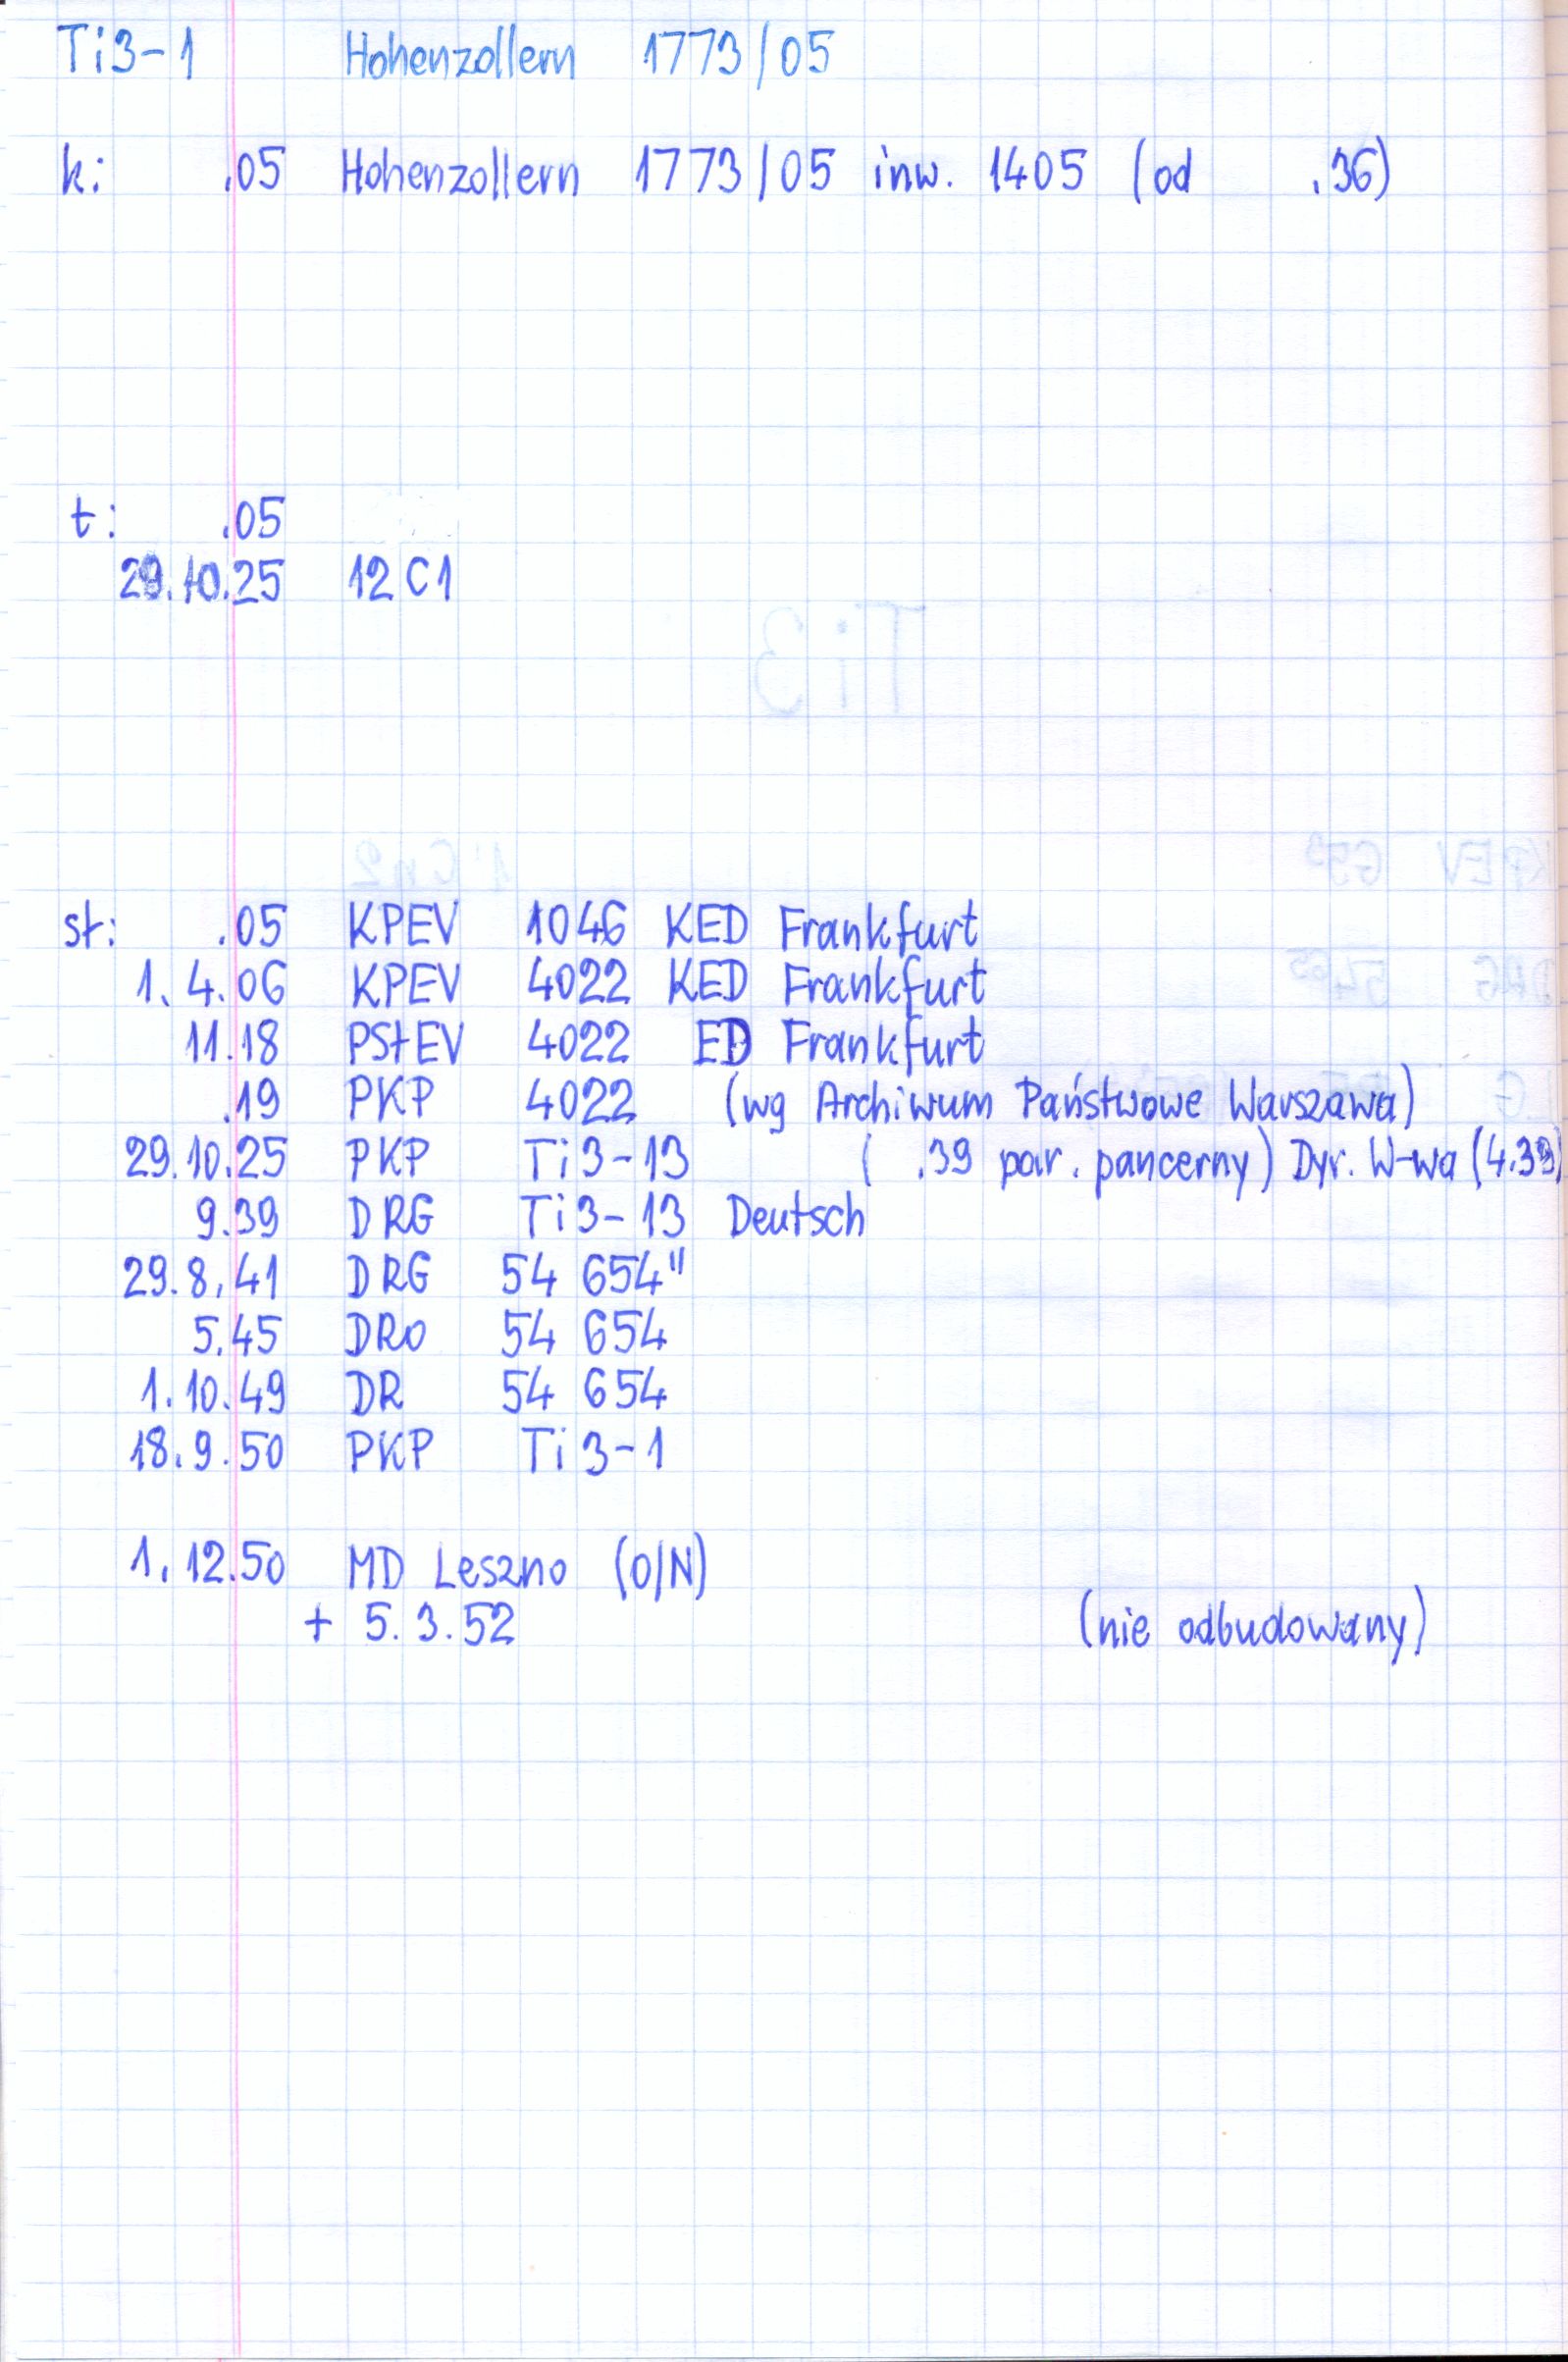 Ti3-1 Hohenzollern 1773/05
k: .05 Hohenzollern 1773/05 inw. 1405 (od .36)
t: .05
29.10.25 12C1
st: .05 KPEV 1046 KED Frankfurt
1.4.06 KPEV 4022 KED Frankfurt
11.18 PStEV 4022 ED Frankfurt
.19 PKP 4022 (wg Archiwum Państwowe Warszawa)
29.10.25 PKP Ti3-13 ( .39 par. pancerny) Dyr. W-wa (4.39)
9.39 DRG Ti3-13 Deutsch
29.8.41 DRG 54 654"
5.45 DRo 54 654
1.10.49 DR 54 654
18.9.50 PKP Ti3-1
1.12.50 MD Leszno (O/N)
+ 5.3.52 (nie odbudowany)